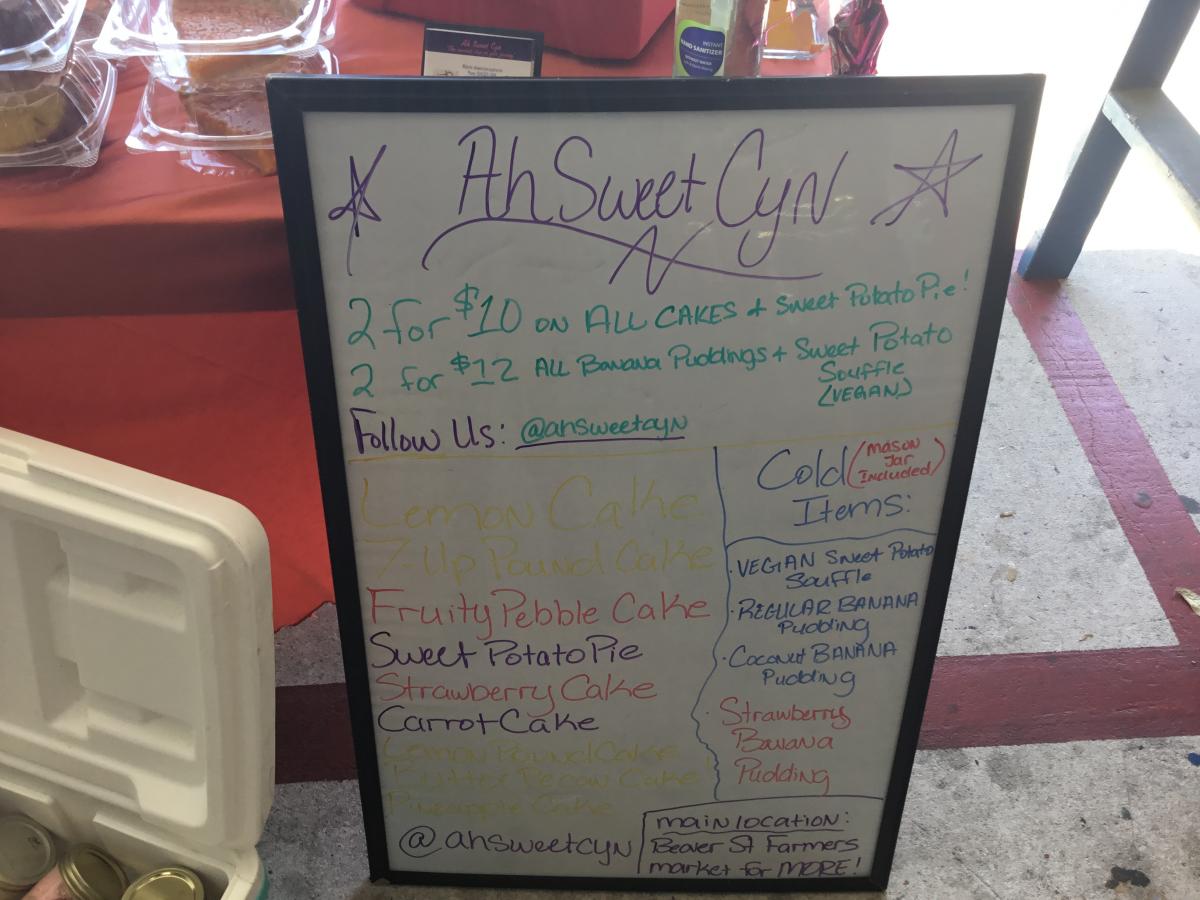 Ah Sweet Cyn
INSTANT
HAND SANITIZER
Ah Sweet CyN
2 for $10 ON ALL CAKES + Sweet Potato Pie!
2 for $12 ALL Banana Puddings + Sweet Potato
Souffle
(VEGAN)
Follow Us: @ahsweetcyn
Lemon Cake
7-Up Pound Cake
Fruity Pebble Cake
Sweet Potato Pie
Strawberry Cake
Carrot Cake
Lemon Pound Cake
Butter Pecan Cake!
Pineapple Cake
@ahsweetcyn
Cold (Mason Jar Included)
Items:
· VEGAN Sweet Potato
Souffle
· REGULAR BANANA
Pudding
· Coconut BANANA
Pudding
· Strawberry
Banana
Pudding
main location:
Beaver St Farmers
market for MORE!